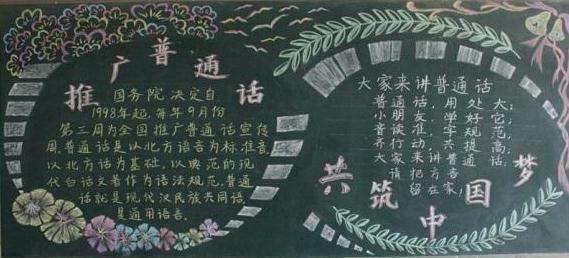 推广普通话
国务院决定自
1998年起,每年9月份
第三周为全国推广普通话宣传
周.普通话是以北方语言为标准音,
以北方话为基础,以典范的现
代白话文著作为语法规范.普通
话就是现代汉民族共同话
是通用语言.
大家来讲普通话
普通话,用处大;
小朋友,学好它,
音读准,字规范,
齐行动,共提高,
大家来讲普通话
请把方言
留在家
共筑中国梦